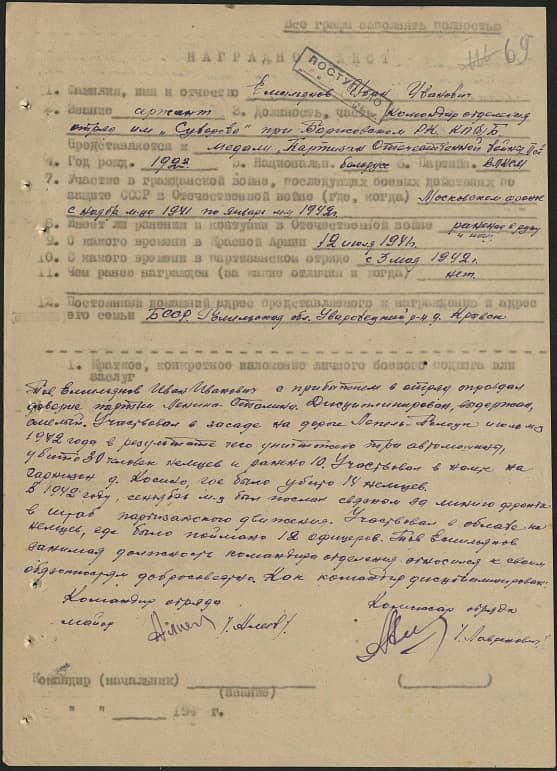 Все графы заполнять полностью
69
НАГРАДНОЙ ЛИСТ
ПОСТУПИЛО
1. Фамилия, имя и отчество Емельянов Иван Иванович
2. Звание сержант 3. Должность, часть Командир отделения
отряда им. "Суворова" при Борисовском РК КП(б)Б
Представляется к медали "Партизан Отечественной войны
4. Год рожд. 1922 5. Национальн. белорус 6. Партийн. ВЛКСМ
7. Участие в гражданской войне, последующих боевых действиях по
защите СССР и Отечественной войне (где, когда) Московском фронте
с ноября м-ца 1941 по январь м-ц 1942 г.
8. Имеет ли ранения и контузии в Отечественной войне ранение в руку
и ногу
9. С какого времени в Красной Армии 12 июля 1941 г.
10. С какого времени в партизанском отряде с 3 мая 1942 г.
11. Чем ранее награжден (за какие отличия и когда) нет.
12. Постоянный домашний адрес представляемого к награждению и адрес
его семьи БССР, Гомельская обл. Уваровичский р-н д.
1. Краткое, конкретное изложение личного боевого подвига или
заслуг
Тов Емельянов Иван Иванович с прибытием в отряд оправдал
доверие партии Ленина-Сталина. Дисциплинирован, выдержан,
смелый. Участвовал в засаде на дороге Лепель- июль м-ц
1942 года в результате чего уничтожено три автомашины,
убито 30 человек немцев и ранено 10. Участвовал в налете на
гарнизон д. Косино, где было убито 14 немцев.
В 1942 году, сентябрь м-ц был послан связным за линию фронта
в штаб партизанского движения. Участвовал в облаве на
немцев, где было поймано 12 офицеров. Тов Емельянов
занимая должность командира отделения относился к своим
обязанностям добросовестно. Как командир дисциплинирован.
Командир отряда Комиссар отряда
майор
Командир (начальник)
(звание)
" " 194 г.